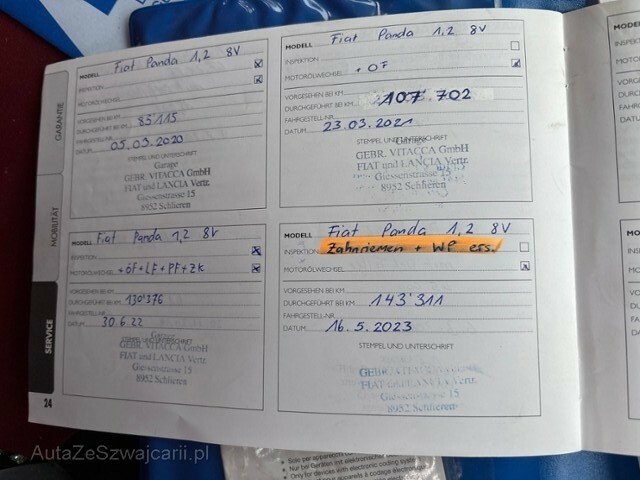 GARANTIE
MOBILITÄT
SERVICE
24
MODELL Fiat Panda 1,2 8V
INSPEKTION
MOTORÖLWECHSEL
VORGESEHEN BEI KM
DURCHGEFÜHRT BEI KM 85115
FAHRGESTELL-NR.
DATUM 05.03.2020
STEMPEL UND UNTERSCHRIFT
Garage
GEBR. VITACCA GmbH
FIAT und LANCIA Vertr.
Giessenstrasse 15
8952 Schlieren
MODELL Fiat Panda 1,2 8V
INSPEKTION
MOTORÖLWECHSEL + ÖF
VORGESEHEN BEI KM
DURCHGEFÜHRT BEI KM 107 702
FAHRGESTELL-NR.
DATUM 23.03.2021
STEMPEL UND UNTERSCHRIFT
Garage
GEBR. VITACCA GmbH
FIAT und LANCIA Vertr.
Giessenstrasse 15
8952 Schlieren
MODELL Fiat Panda 1,2 8V
INSPEKTION
MOTORÖLWECHSEL + ÖF + LF + PF + ZK
VORGESEHEN BEI KM
DURCHGEFÜHRT BEI KM 130'376
FAHRGESTELL-NR.
DATUM 30.6.22
STEMPEL UND UNTERSCHRIFT
Garage
GEBR. VITACCA GmbH
FIAT und LANCIA Vertr.
Giessenstrasse 15
8952 Schlieren
MODELL Fiat Panda 1,2 8V
INSPEKTION Zahnriemen + WP ers.
MOTORÖLWECHSEL
VORGESEHEN BEI KM
DURCHGEFÜHRT BEI KM 143'311
FAHRGESTELL-NR.
DATUM 16.5.2023
STEMPEL UND UNTERSCHRIFT
GEBR. VITACCA GmbH
FIAT und LANCIA Vertr.
Giessenstrasse 15
8952 Schlieren
AutaZeSzwajcarii.pl